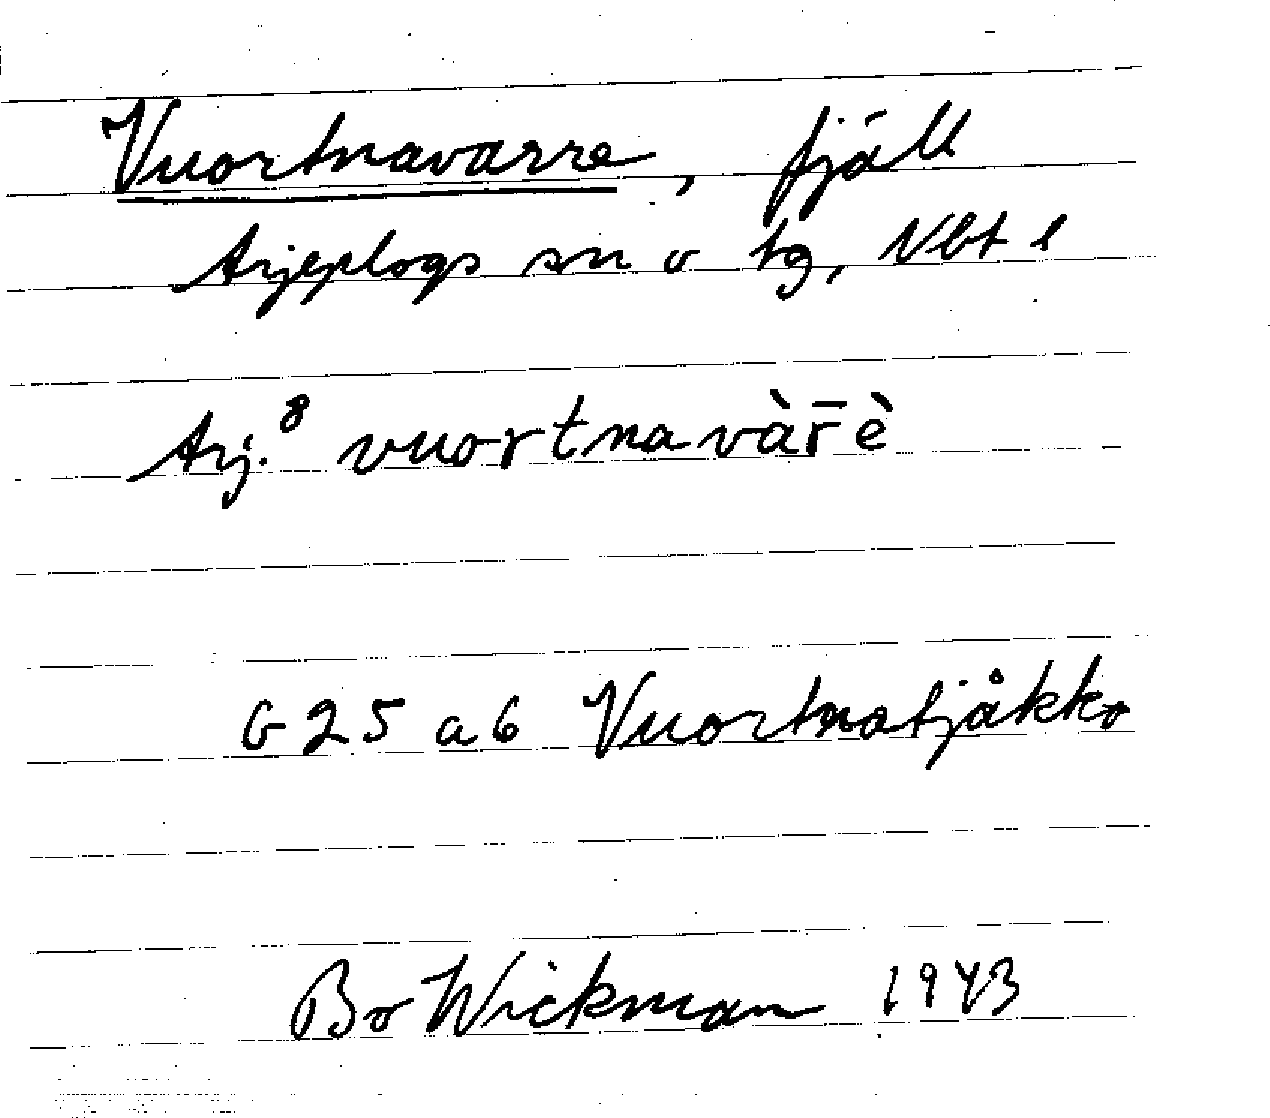 Vuortnavarre, fjäll
Arjeplogs sn o tg, Vbt l
Arj.8 vuortnavàr̄è
G25 a6 Vuortnatjåkko
Bo Wickman 1943